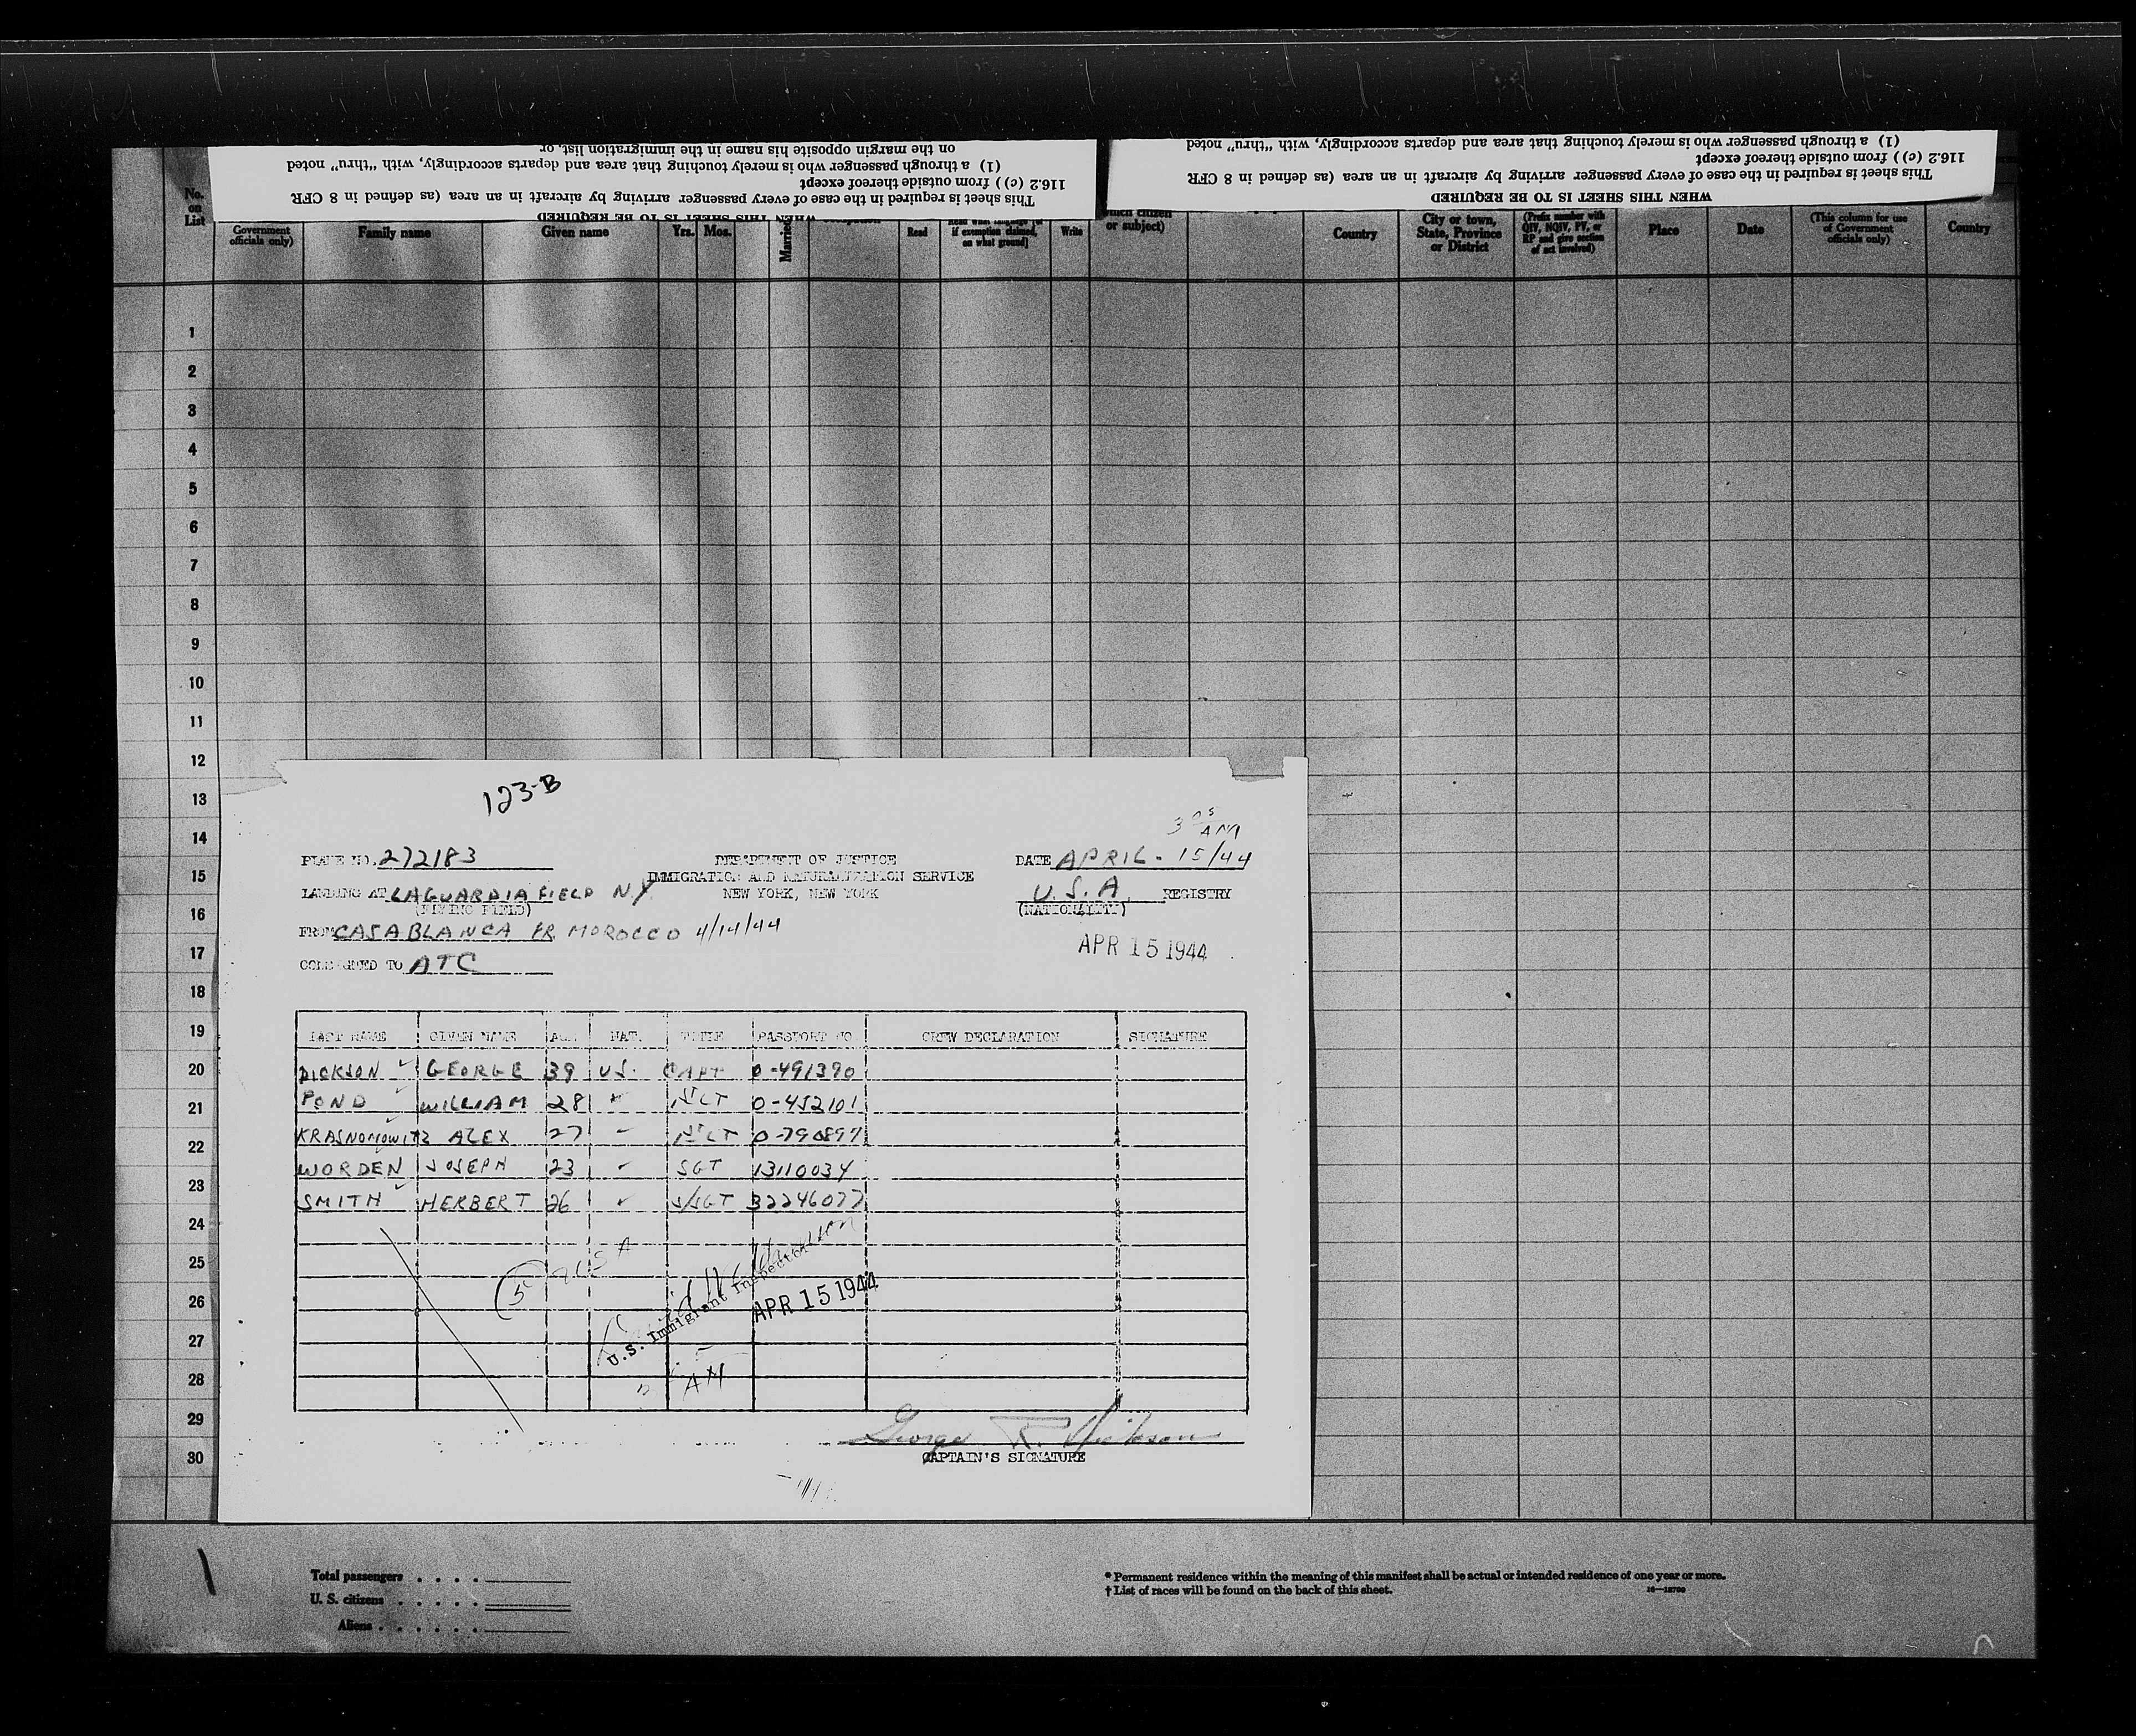 on the margin opposite his name in the immigration list, or
(1) a through passenger who is merely touching that area and departs accordingly, with "thru" noted
116.2 (c) ) from outside thereof except
This sheet is required in the case of every passenger arriving by aircraft in an area (as defined in 8 CFR
WHEN THIS SHEET IS TO BE REQUIRED
(1) a through passenger who is merely touching that area and departs accordingly, with "thru" noted
116.2 (c) ) from outside thereof except
This sheet is required in the case of every passenger arriving by aircraft in an area (as defined in 8 CFR
WHEN THIS SHEET IS TO BE REQUIRED
No. on List
Government officials only)
Family name
Given name
Yrs.
Mos.
Married
Read
Read what language [or if exemption claimed, on what ground]
Write
which citizen or subject)
Country
City or town, State, Province or District
(Prefix number with QIV, NQIV, PV, or RP and give section of act involved)
Place
Date
(This column for use of Government officials only)
Country
1
2
3
4
5
6
7
8
9
10
11
12
13
14
15
16
17
18
19
20
21
22
23
24
25
26
27
28
29
30
123-B
3 05 AM
PLANE NO. 272183
DEPARTMENT OF JUSTICE
DATE APRIL - 15/44
IMMIGRATION AND NATURALIZATION SERVICE
LANDING AT LAGUARDIA FIELD N.Y
NEW YORK, NEW YORK
U.S.A. REGISTRY
(FLYING FIELD)
(NATIONALITY)
FROM CASABLANCA FR MOROCCO 4/14/44
APR 15 1944
CONSIGNED TO ATC
LAST NAME GIVEN NAME AGE NAT. TITLE PASSPORT NO CREW DECLARATION SIGNATURE
DICKSON GEORGE 39 U.S. CAPT O-491390
POND WILLIAM 28 1st LT O-452101
KRASNOMOWITZ ALEX 27 1st LT O-790897
WORDEN JOSEPH 23 SGT 13110034
SMITH HERBERT 26 S/SGT 32246077
5 USA
U.S. Immigrant Inspector
APR 15 1944
AM
George R. Dickson
CAPTAIN'S SIGNATURE
Total passengers . . . .
U. S. citizens . . . . .
Aliens . . . . . .
* Permanent residence within the meaning of this manifest shall be actual or intended residence of one year or more.
† List of races will be found on the back of this sheet.